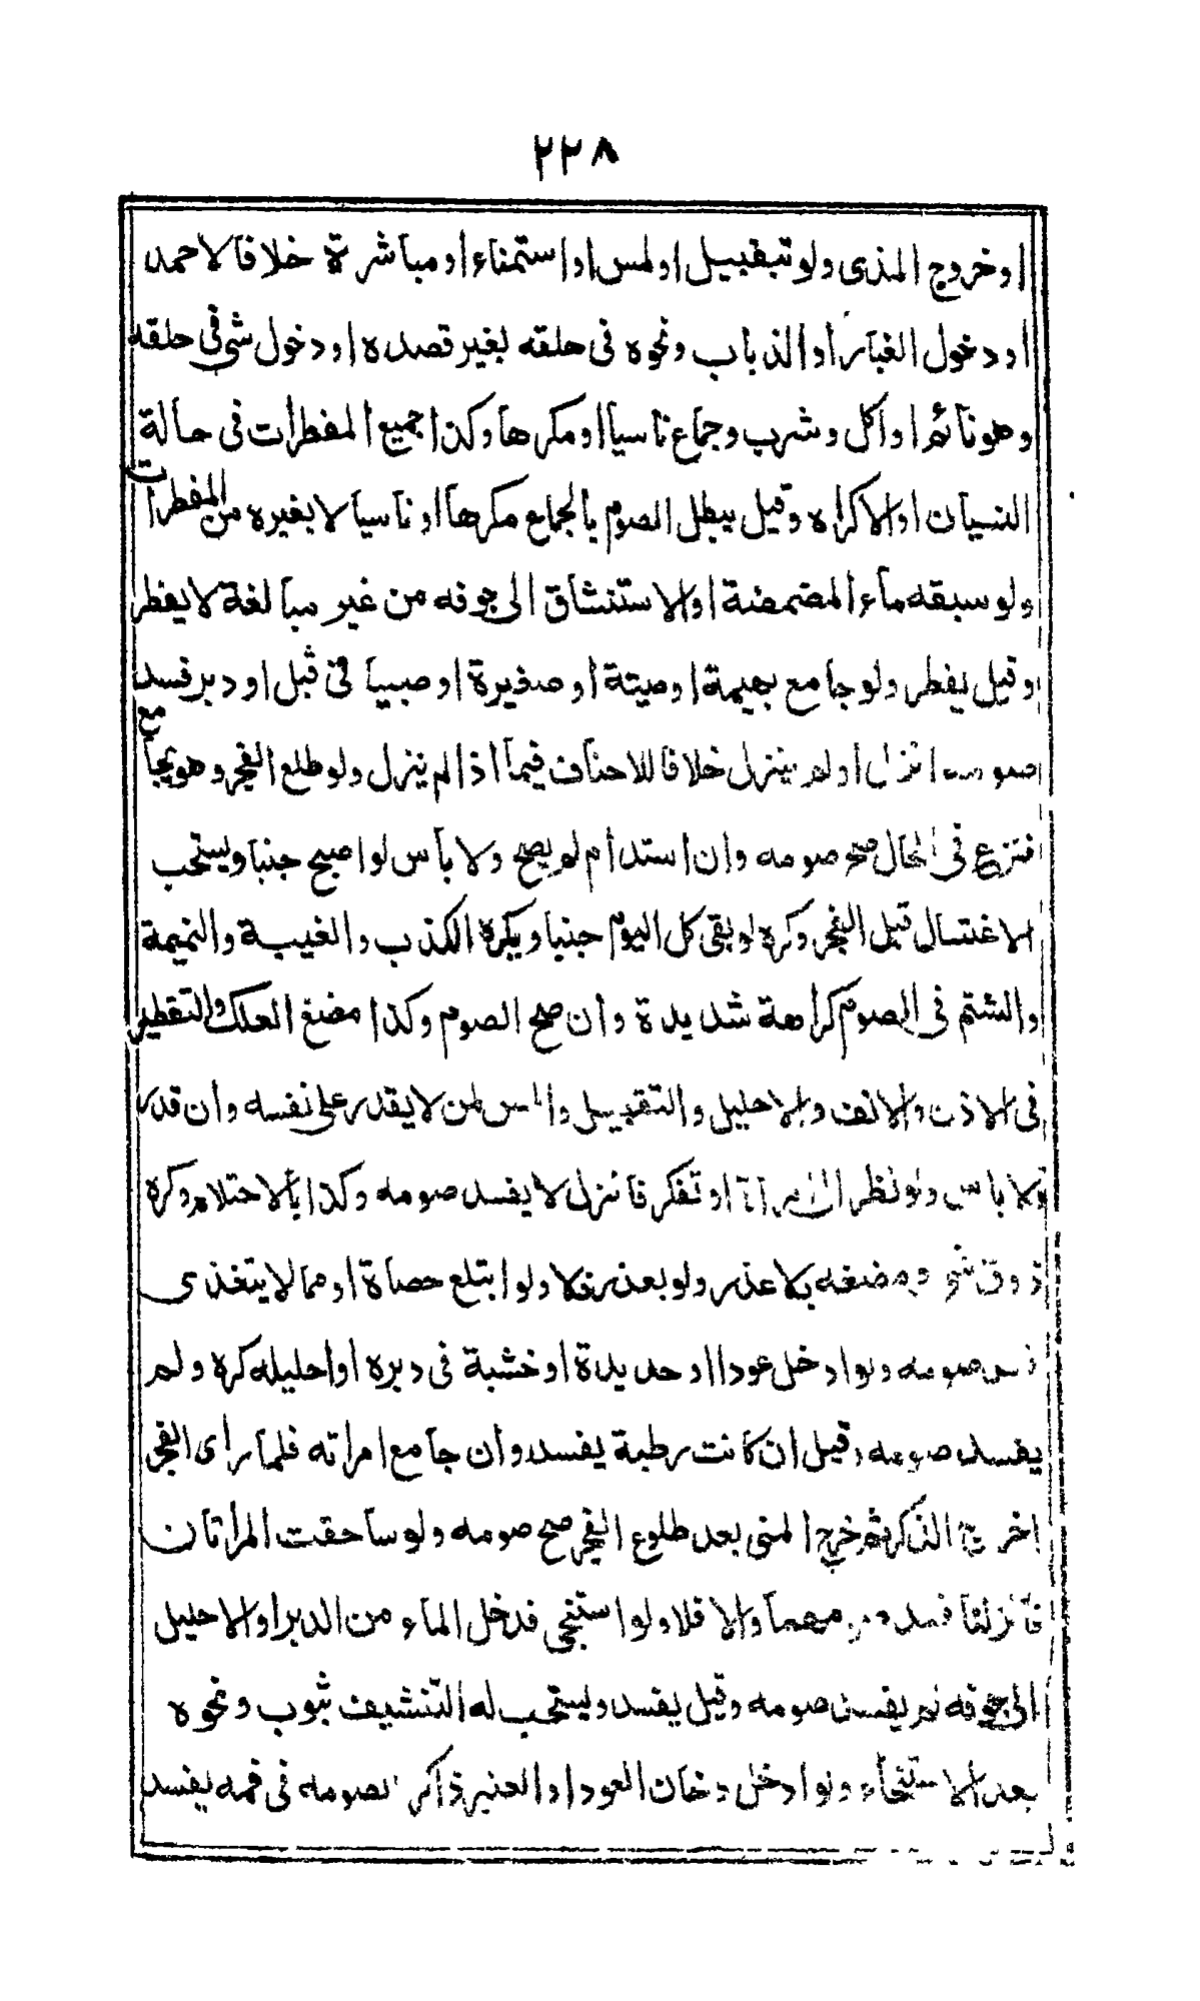 ٢٢٨
او خروج المذى ولو تبقبيل او لمس او استمناء او مباشرة خلافا لاحمد
او دخول الغبار او الذباب ونحوه فى حلقه بغير قصده او دخول شى فى حلقه
وهو نائم او اكل وشرب وجماع ناسيا او مكرها وكذا جميع المفطرات فى حالة
النسيان او الاكراه وقيل يبطل الصوم بالجماع مكرها او ناسيا لا بغيره من المفطرات
ولو سبقه ماء المضمضة او الاستنشاق الى جوفه من غير مبالغة لا يفطر
وقيل يفطر ولو جامع بهيمة او ميتة او صغيرة او صبيا فى قبل او دبر فسد
صومه انزل او لم ينزل خلافا للاحناف فيما اذا لم ينزل ولو طلع الفجر وهو يجامع
فنزع فى الحال صح صومه وان استدام لم يصح ولا باس لو اصبح جنبا ويستحب
الاغتسال قبل الفجر وكره لو بقى كل اليوم جنبا ويكره الكذب والغيبة والنميمة
والشتم فى الصوم كراهة شديدة وان صح الصوم وكذا مضغ العلك والتقطير
فى الاذن والانف والاحليل والتقبيل والمس لمن لا يقدر على نفسه وان قدر
فلا باس ولو نظر الى امراة او تفكر فانزل لا يفسد صومه وكذا بالاحتلام وكره
ذوق شى ومضغه بلا عذر ولو بعذر فلا ولو ابتلع حصاة او مما لا يتغذى
فسد صومه ولو ادخل عودا او حديدة او خشبة فى دبره او احليله كره ولم
يفسد صومه وقيل ان كانت رطبة يفسد وان جامع امراته فلما راى الفجر
اخرج الذكر ثم خرج المنى بعد طلوع الفجر صح صومه ولو ساحقت المراتان
فانزلتا فسد صومهما والا فلا ولو استنجى فدخل الماء من الدبر او الاحليل
الى جوفه لم يفسد صومه وقيل يفسد وليستحب له التنشيف بثوب ونحوه
بعد الاستنجاء ولو ادخل دخان العود او العنبر ذاكرا لصومه فى فمه يفسد